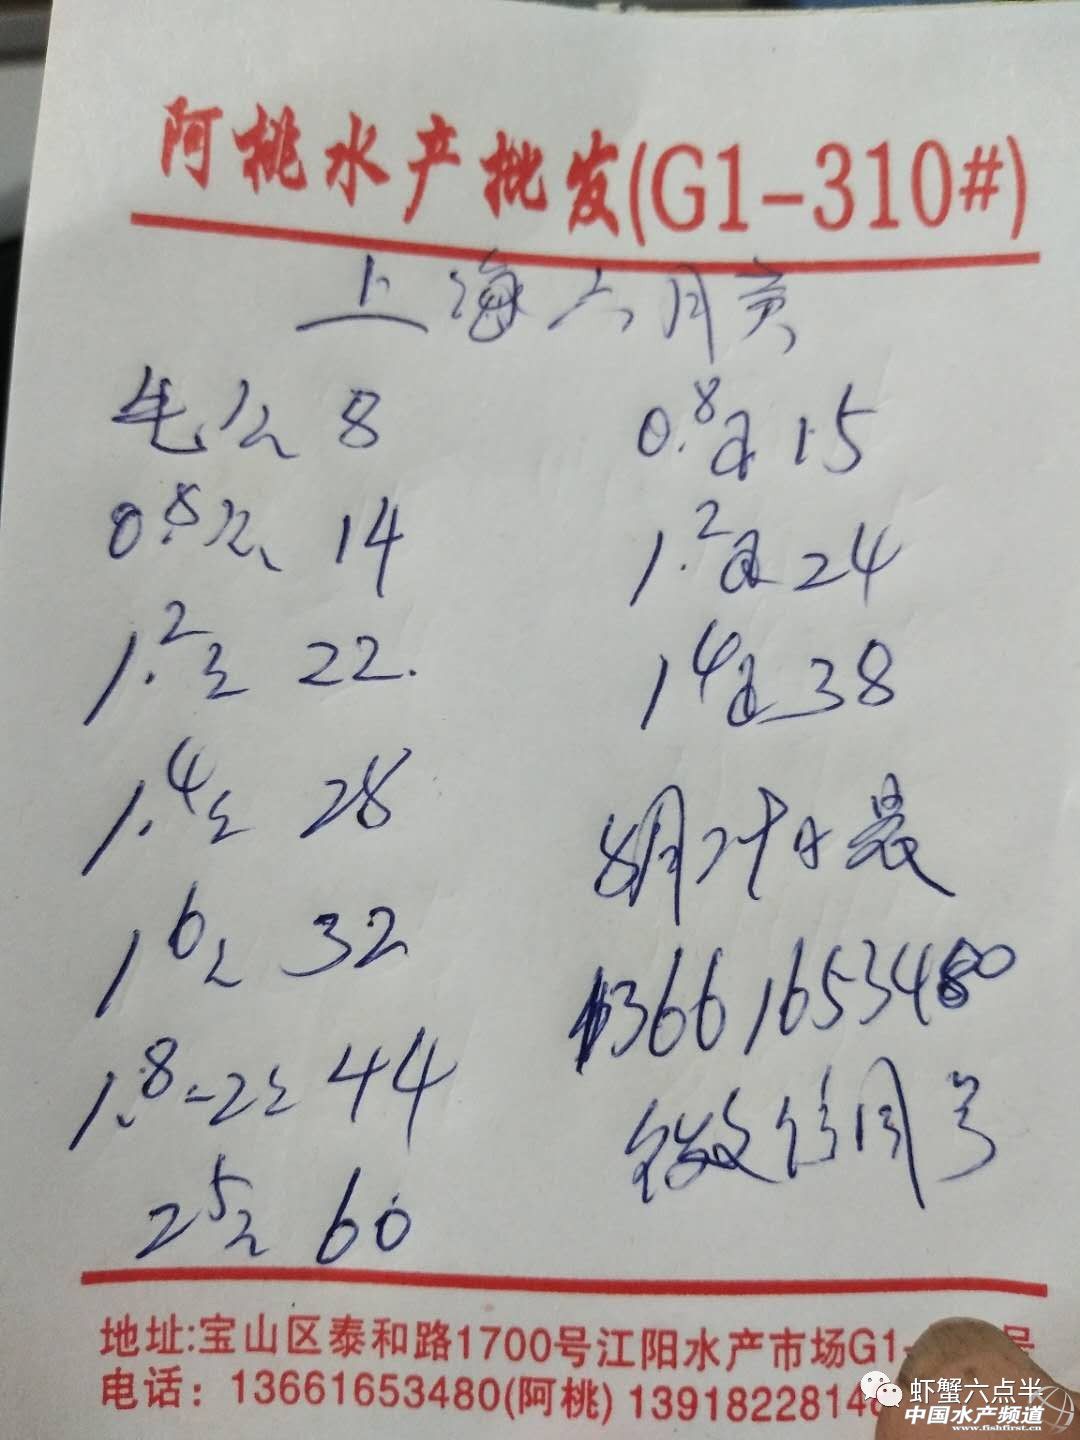 阿桃水产批发(G1-310#)
上海六月黄
毛公 8
0.8公 14
1.2公 22.
1.4公 28
1.6公 32
1.8-2公 44
2.5公 60
0.8母 15
1.2母 24
1.4母 38
8月 日晨
13661653480
微信同号
地址:宝山区泰和路1700号江阳水产市场G1- 号
电话：13661653480(阿桃) 1391822814
虾蟹六点半
中国水产频道
www.fishfirst.cn